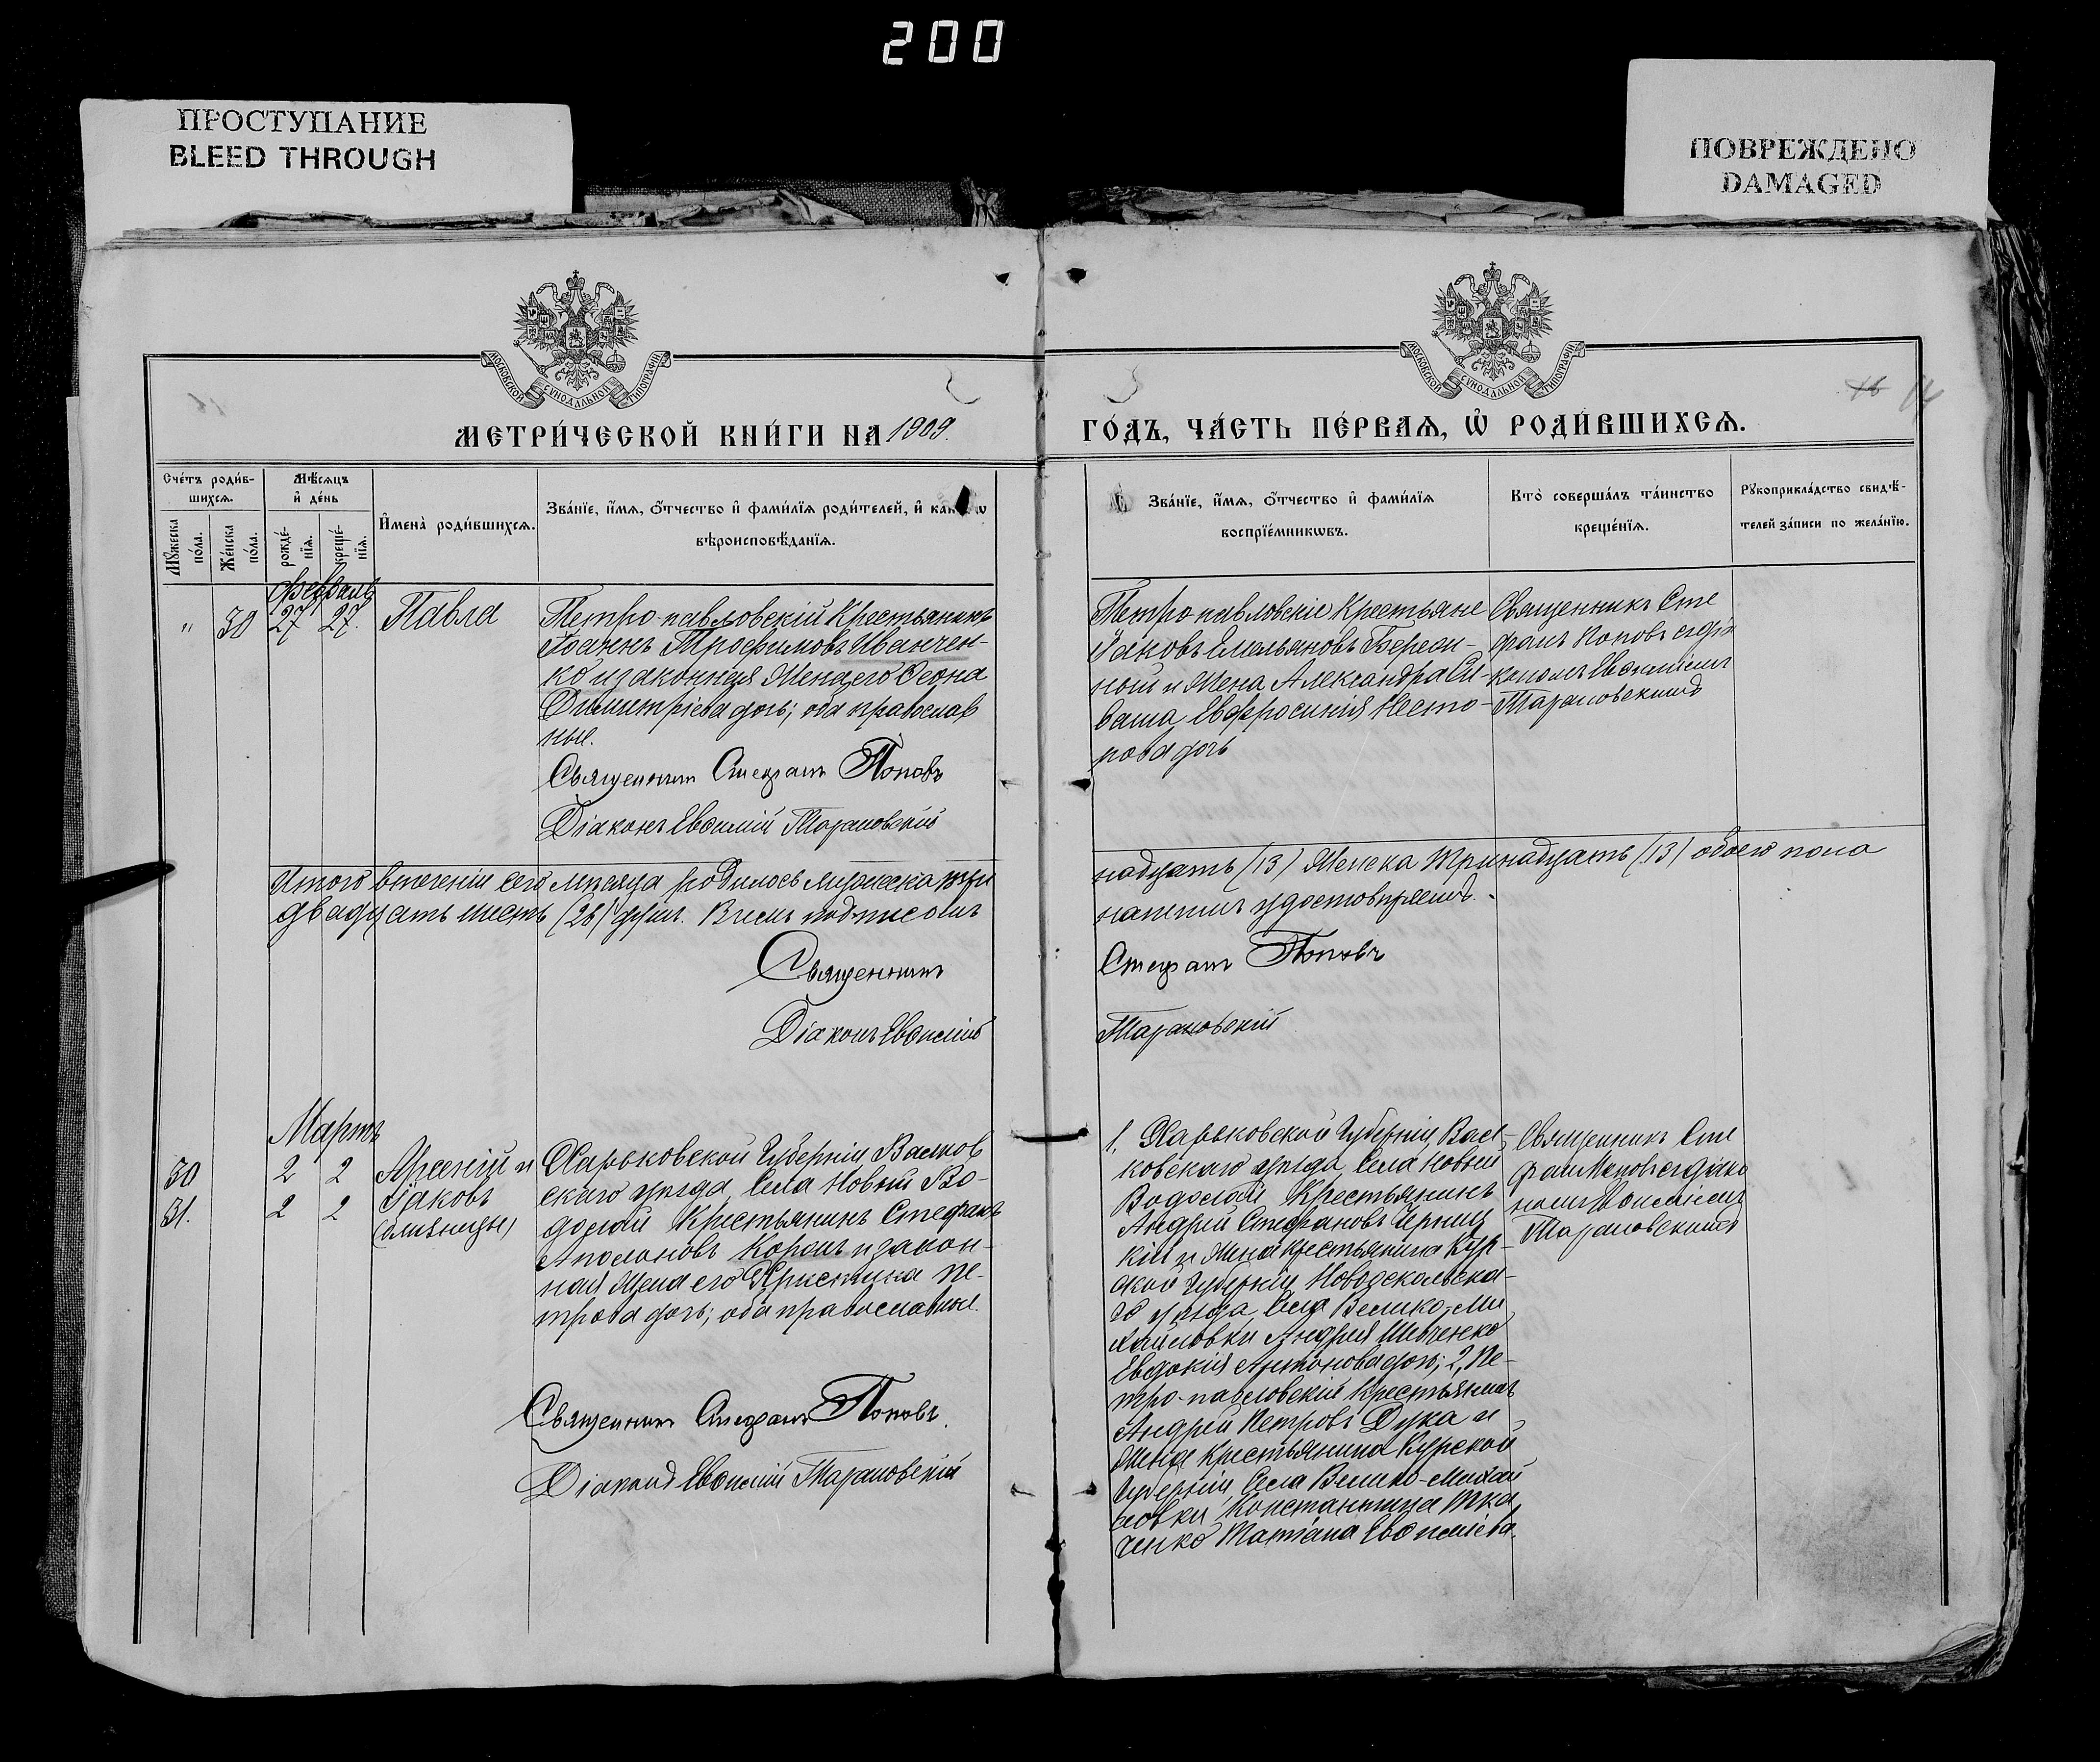 200
ПРОСТУПАНИЕ
BLEED THROUGH
ПОВРЕЖДЕНО
DAMAGED
МОСКОВСКОЙ СѴНОДАЛЬНОЙ ТИПОГРАФІИ
МОСКОВСКОЙ СѴНОДАЛЬНОЙ ТИПОГРАФІИ
16
МЕТРИ́ЧЕСКОЙ КНИ́ГИ НА 1909.
ГО́ДЪ, ЧА́СТЬ ПЕ́РВАѦ, Ѽ РОДИ́ВШИХСѦ.
Сче́тъ роди́в-
шихсѧ.
Мꙋ́жеска по́ла.
Же́нска по́ла.
Мѣ́сѧцъ
и҆ де́нь
рожде́-
нїѧ.
креще́-
нїѧ.
И҆мена̀ роди́вшихсѧ.
Зва́нїе, и҆́мѧ, ѻ҆́тчество и҆ фами́лїѧ роди́телей, и҆
вѣроисповѣ́данїѧ.
Зва́нїе, и҆́мѧ, ѻ҆́тчество и҆ фами́лїѧ
воспрїе́мникѡвъ.
Кто̀ соверша́лъ та́инство
креще́нїѧ.
Рꙋкоприкла́дство свидѣ́-
телей за́писи по жела́нїю.
Февраль
" 30 27 27. Павла
Петро-павловскій Крестьянинъ
Іоаннъ Трофимовъ Иванчен-
ко и законная жена его Ѳеона
Димитріева дочь; оба православ
ные.
Священникъ Стефанъ Поповъ
Діаконъ Евѳимій Тарановскій
Петро-павловскіе Крестьяне
Іаковъ Емельяновъ
ной и жена Александра Си-
ваша Евфросинія Несто-
рова дочь
Священникъ Сте
фанъ Поповъ съ діа
кономъ Евѳиміемъ
Тарановскимъ
Итого втеченіи сего мѣсяца родилось мужеска три
надцать (13) женска тринадцать (13) обоего пола
двадцать шесть (26) душъ. В чемъ подписомъ
нашимъ удостовѣряемъ.
Священникъ
Стефанъ Поповъ
Діаконъ Евѳимій
Тарановскій
Мартъ
30 2 2 Арсеній и
31. 2 2 Іаковъ
(близнецы)
Харьковской Губерніи Валков
скаго уѣзда, Села Новый Во-
долай Крестьянинъ Стефанъ
Король и закон-
ная жена его Христина Пе-
трова дочь; оба православные.
Священникъ Стефанъ Поповъ.
Діаконъ Евѳимій Тарановскій
1, Харьковской Губерніи, Вал-
ковскаго уѣзда, Села Новый
Водолай Крестьянинъ
Андрей Стефановъ Черниц
кій и жена крестьянина Кур-
ской Губерніи, Новооскольска-
го уѣзда, Села Велико-Ми
хайловки Андрея Шевченко
Евдокія Антонова дочь; 2, Пе-
тро-павловскій Крестьянинъ
Андрей Петровъ Дука и
жена Крестьянина Курской
Губерніи, Села Велико-Михай
ловки Константина Тка
ченко Татіана Евѳиміева.
Священникъ Сте
фанъ Поповъ съ діако
номъ Евѳиміемъ
Тарановскимъ